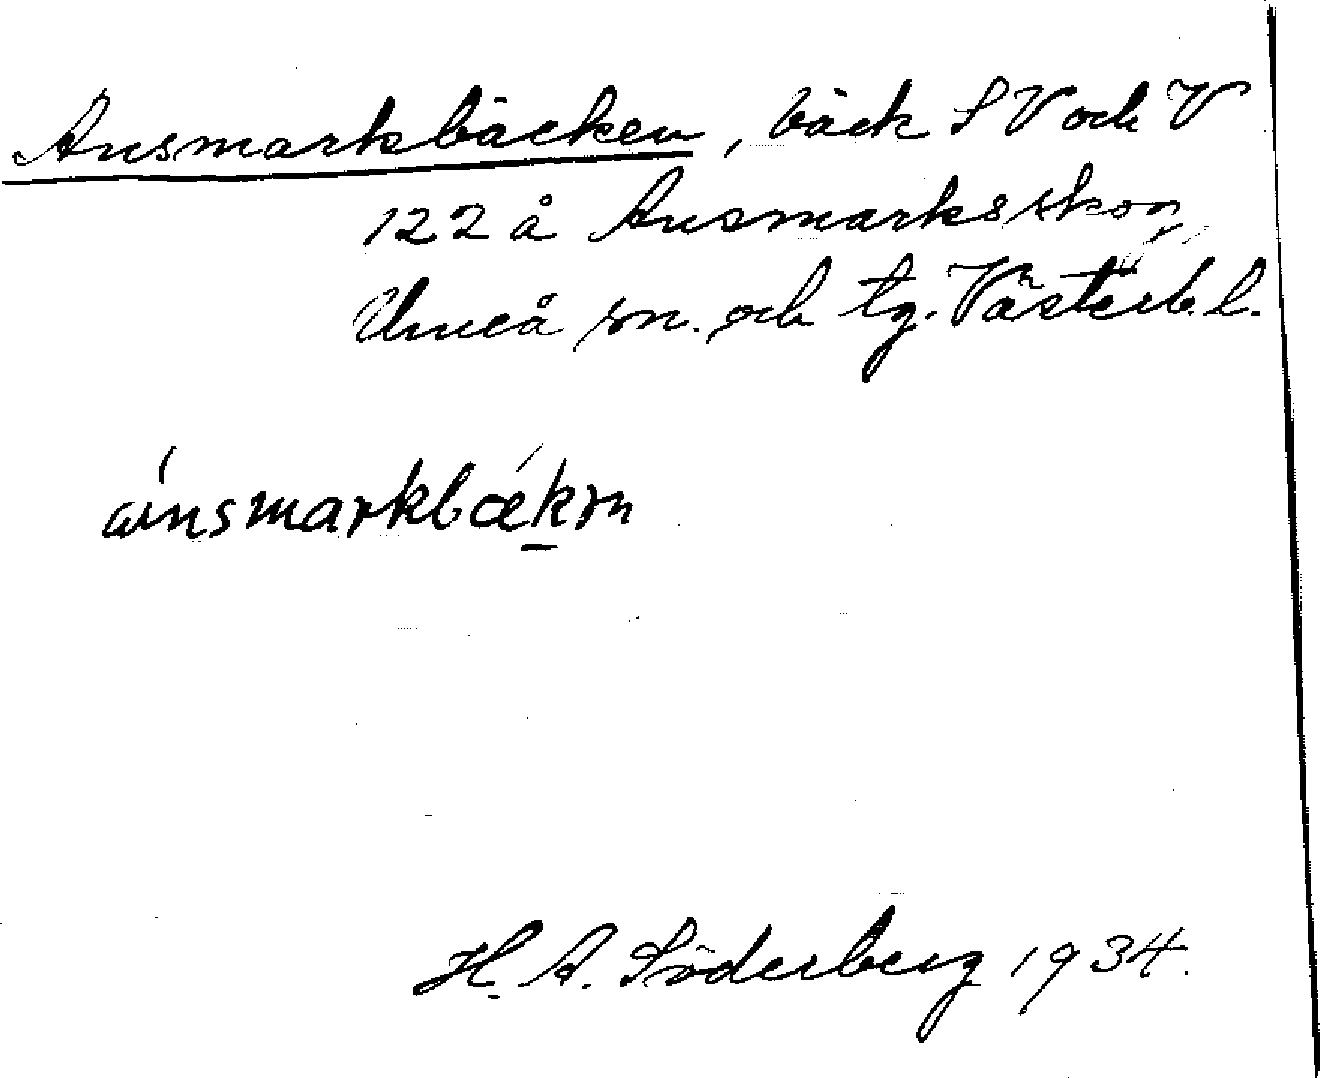 Ansmarkbäcken, bäck S V och V
122 å Ansmarks skog
Umeå sn. och tg. Västerb. l.
ánsmarkbǽkm
H. A. Söderberg 1934.